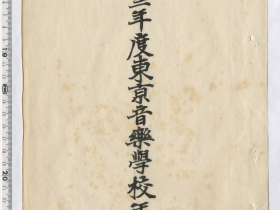 三年度東京音樂學校年
20